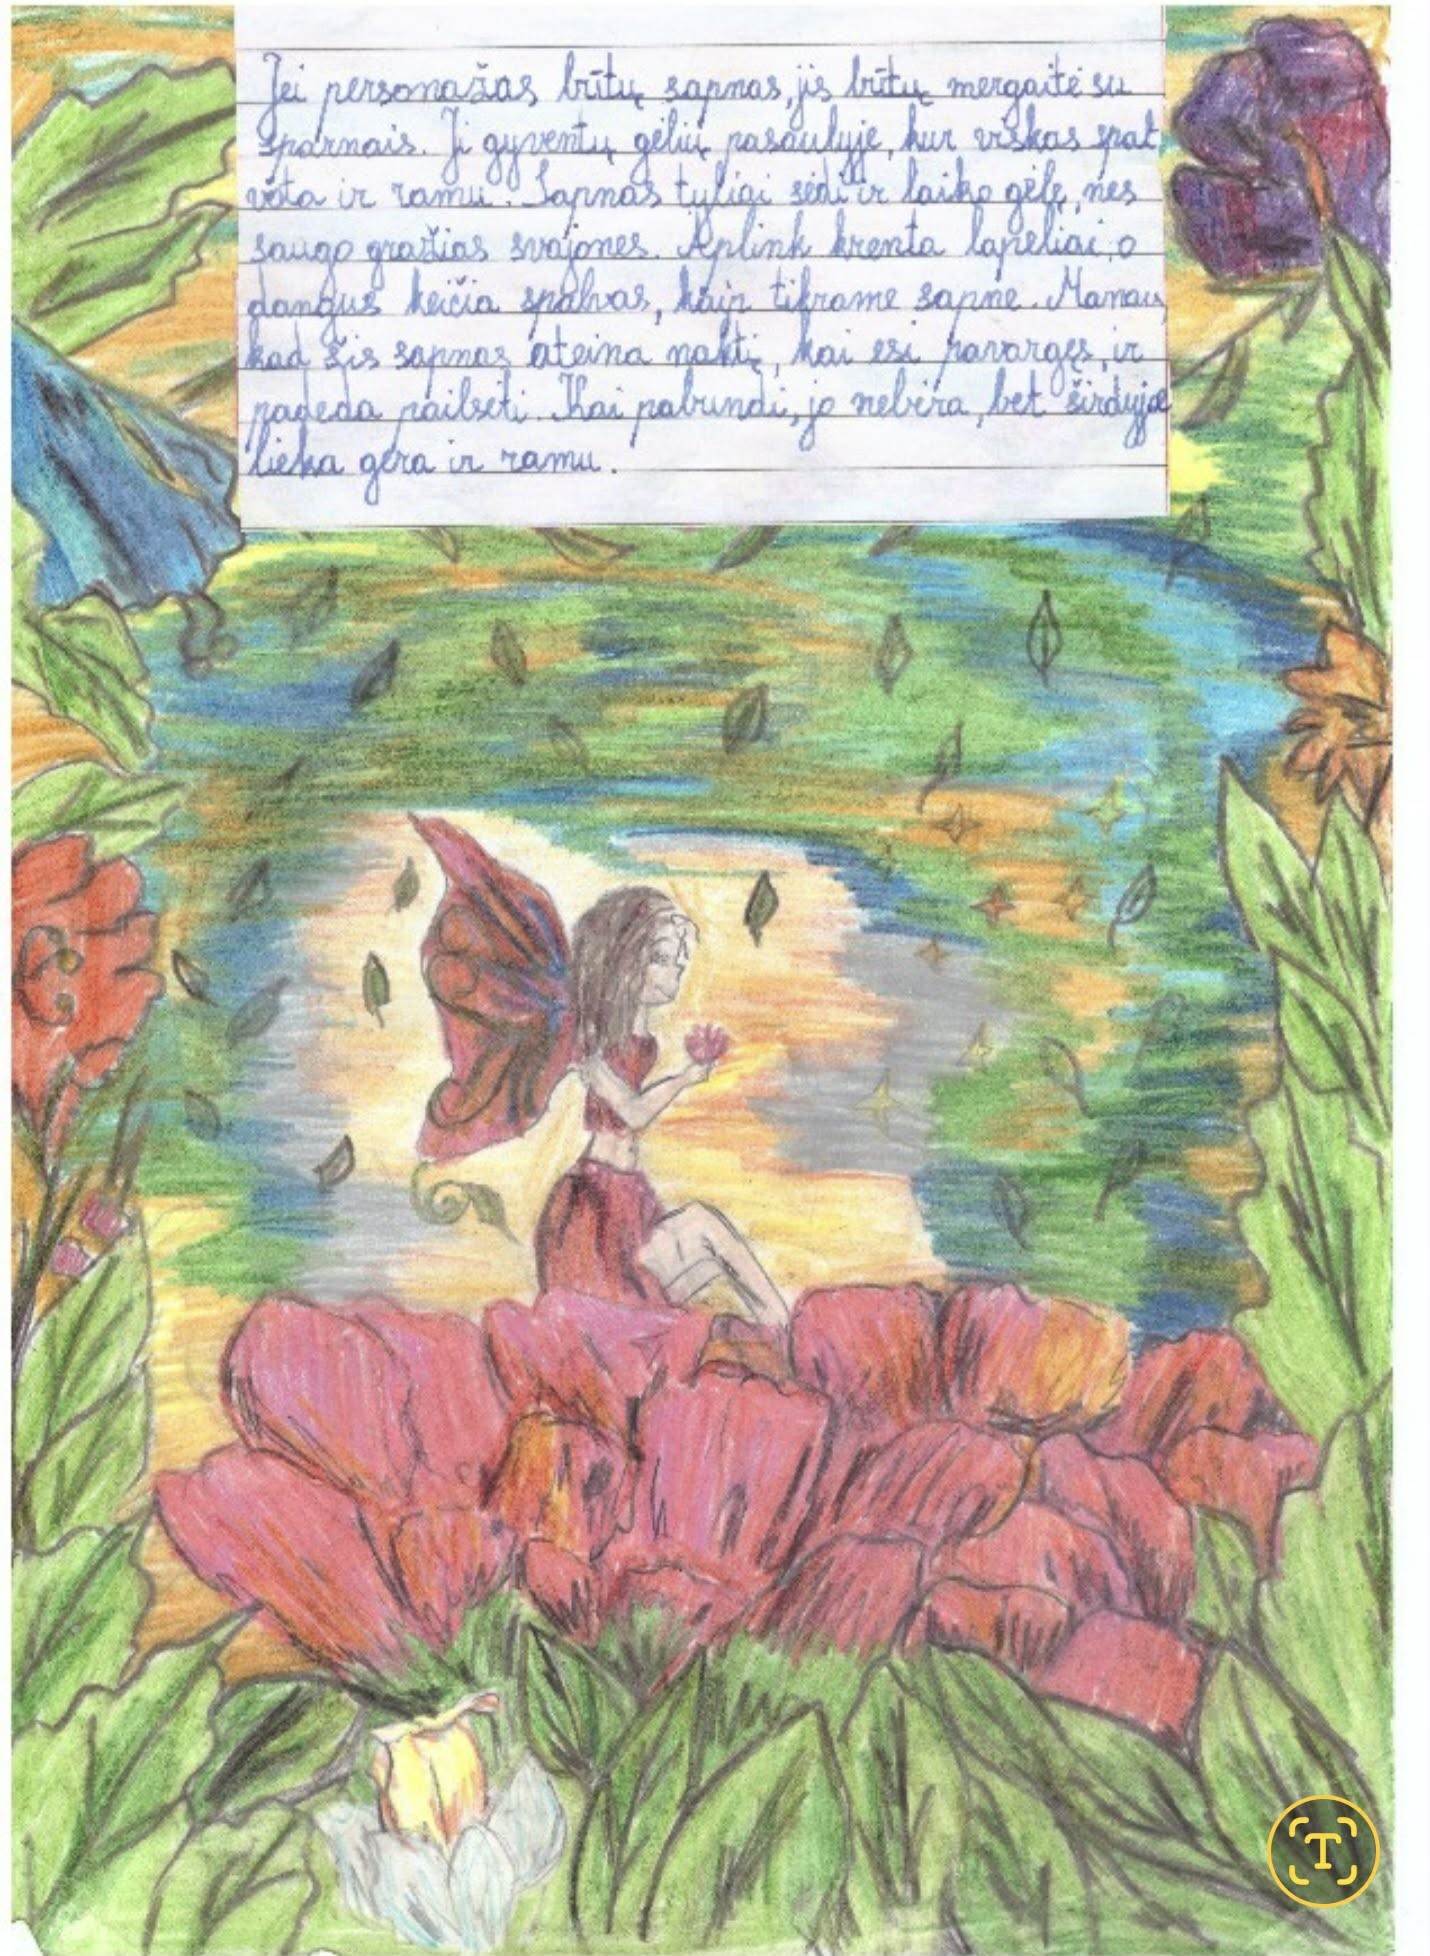 Jei personažas būtų sapnas, jis būtų mergaitė su
sparnais. Ji gyventų gėlių pasaulyje, kur viskas spal
vota ir ramu. Sapnas tyliai sėdi ir laiko gėlę, nes
saugo gražias svajones. Aplink krenta lapeliai, o
dangus keičia spalvas, kaip tikrame sapne. Manau,
kad šis sapnas ateina naktį, kai esi pavargęs, ir
padeda pailsėti. Kai pabundi, jo nebėra, bet širdyje
lieka gera ir ramu.